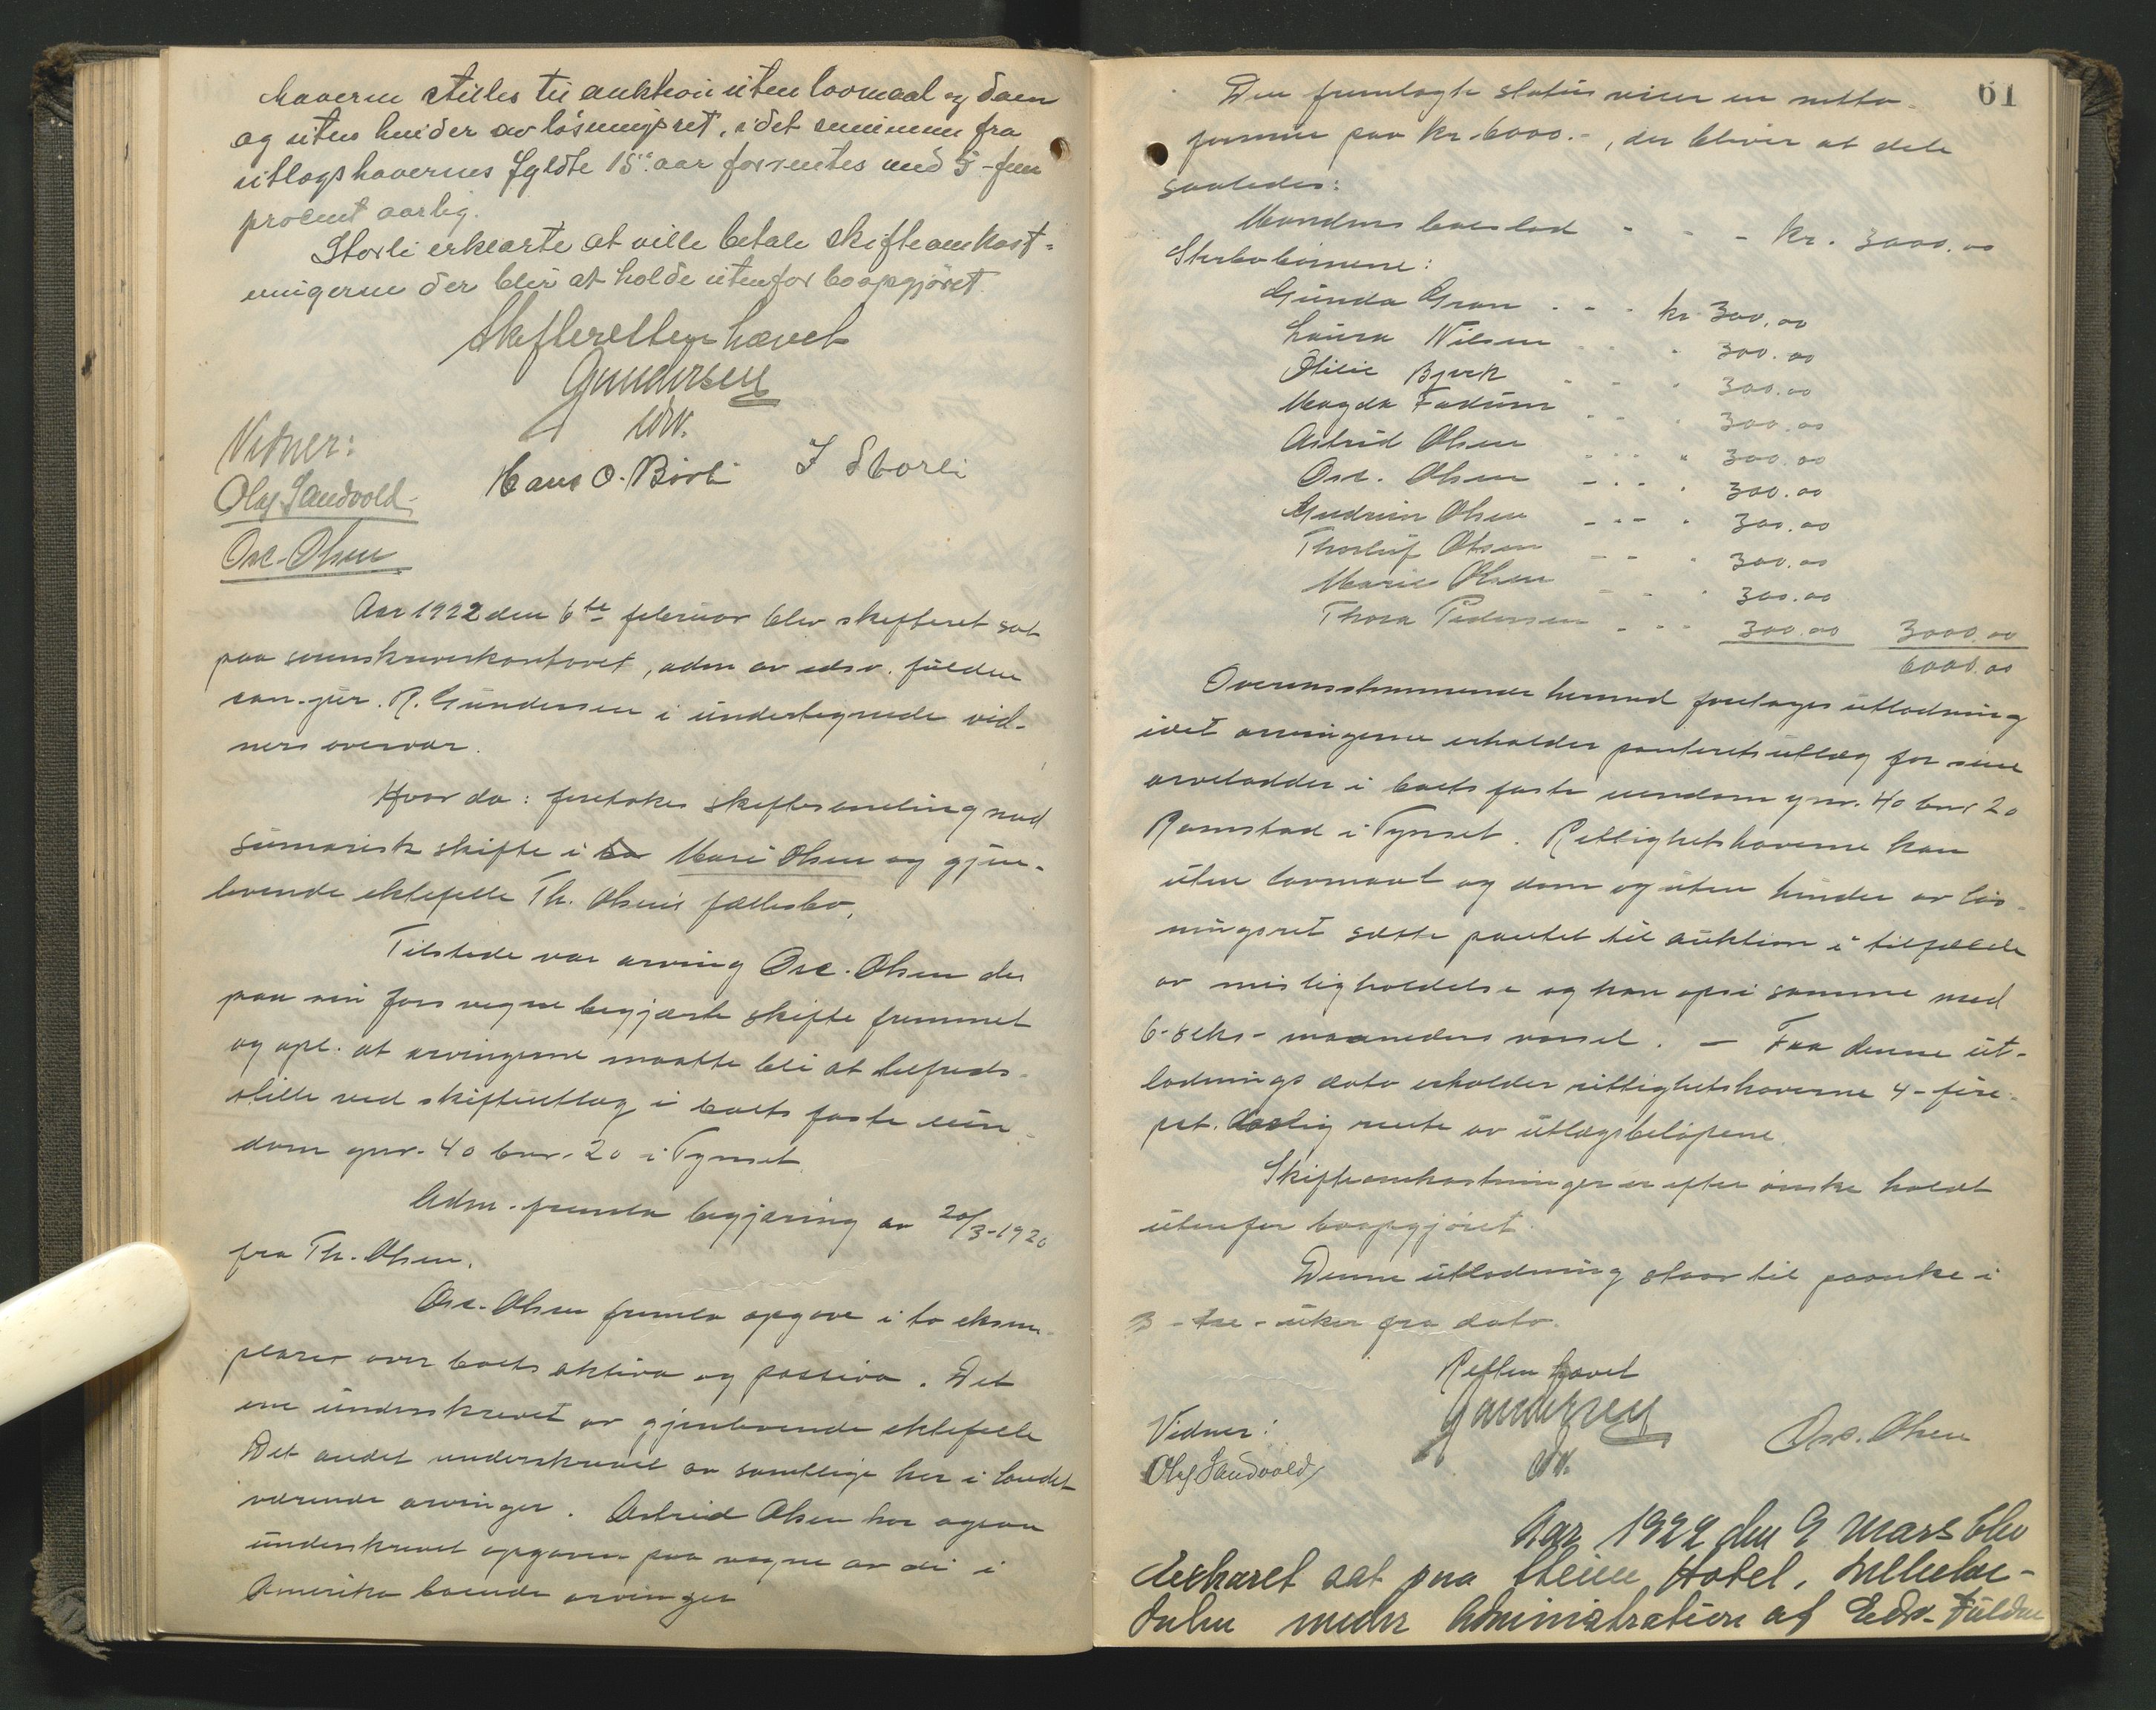 haverne stilles til auktion uten lovmaal og dom
og uten hinder av løsningsret, idet summen fra
utlagshavernes fyldte 15de aar forrentes med 5-fem
procent aarlig.
Storli erklærte at ville betale skifteomkost-
ningerne der blir at holde utenfor boopgjøret.
Skifteretten hævet
Gundersen
edsv.
Vidner:
Hans O. Børli I Storli
Olaf Sandvold
Osc. Olsen
Aar 1922 den 6te februar blev skifteret sat
paa sorenskriverkontoret, adm av edsv. fuldm
can. jur. R. Gundersen i undertegnede vid-
ners overvær.
Hvor da: foretokes skiftesamling med
sumarisk skifte i Mari Olsen og gjen-
levende ektefelle Th. Olsens fællesbo.
Tilstede var arving Osc. Olsen der
paa sin fars vegne begjærte skifte fremmet
og opl. at arvingerne maatte bli at tilfreds-
stille ved skifteutlæg i boets faste eien-
dom gnr. 40 bnr. 20 i Tynset.
Adm. fremla begjæring av 20/3-1920
fra Th. Olsen.
Osc. Olsen fremla opgave i to eksem-
plarer over boets aktiva og passiva. Det
ene underskrevet av gjenlevende ektefelle
Det andet underskrevet av samtlige her i landet
værende arvinger. Astrid Olsen har ogsaa
underskrevet opgaven paa vegne av de i
Amerika boende arvinger
61
Den fremlagte status viser en netto-
formue paa kr. 6000.-, der bliver at dele
saaledes:
Mandens boeslod - - - kr. 3000.00
Sterbobørnene:
Gunda Gran - - - kr. 300.00
Laura Nilsen 300.00
Otilie Bjerk 300.00
Magda 300.00
Astrid Olsen 300.00
Osc. Olsen 300.00
Gudrun Olsen 300.00
Thorleif Olsen 300.00
Marie Olsen 300.00
Thora Pedersen 300.00 3000.00
6000.00
Overensstemmende hermed foretages utlodning
idet arvingerne erholder panteretsutlæg for sine
arvelodder i boets faste eiendom gnr. 40 bnr 20
Ramstad i Tynset. Rettighetshaverne kan
uten lovmaal og dom og uten hinder av løs-
ningsret sætte pantet til auktion i tilfælde
av misligholdelse og kan opsi samme med
6-seks-maaneders varsel. - Fra denne ut-
lodnings dato erholder rettighetshaverne 4-fire-
pct. aarlig rente av utlægsbeløpene.
Skifteomkostninger er efter ønske holdt
utenfor boopgjøret.
Denne utlodning staar til paanke i
3 - tre - uker fra dato.
Retten hævet
Gundersen
Vidner:
Osc. Olsen
Olaf Sandvold
edsv.
Aar 1922 den 9 Mars blev
sat paa Steien Hotel, Lilleelve-
dalen under Administration af Edsv. Fuldm